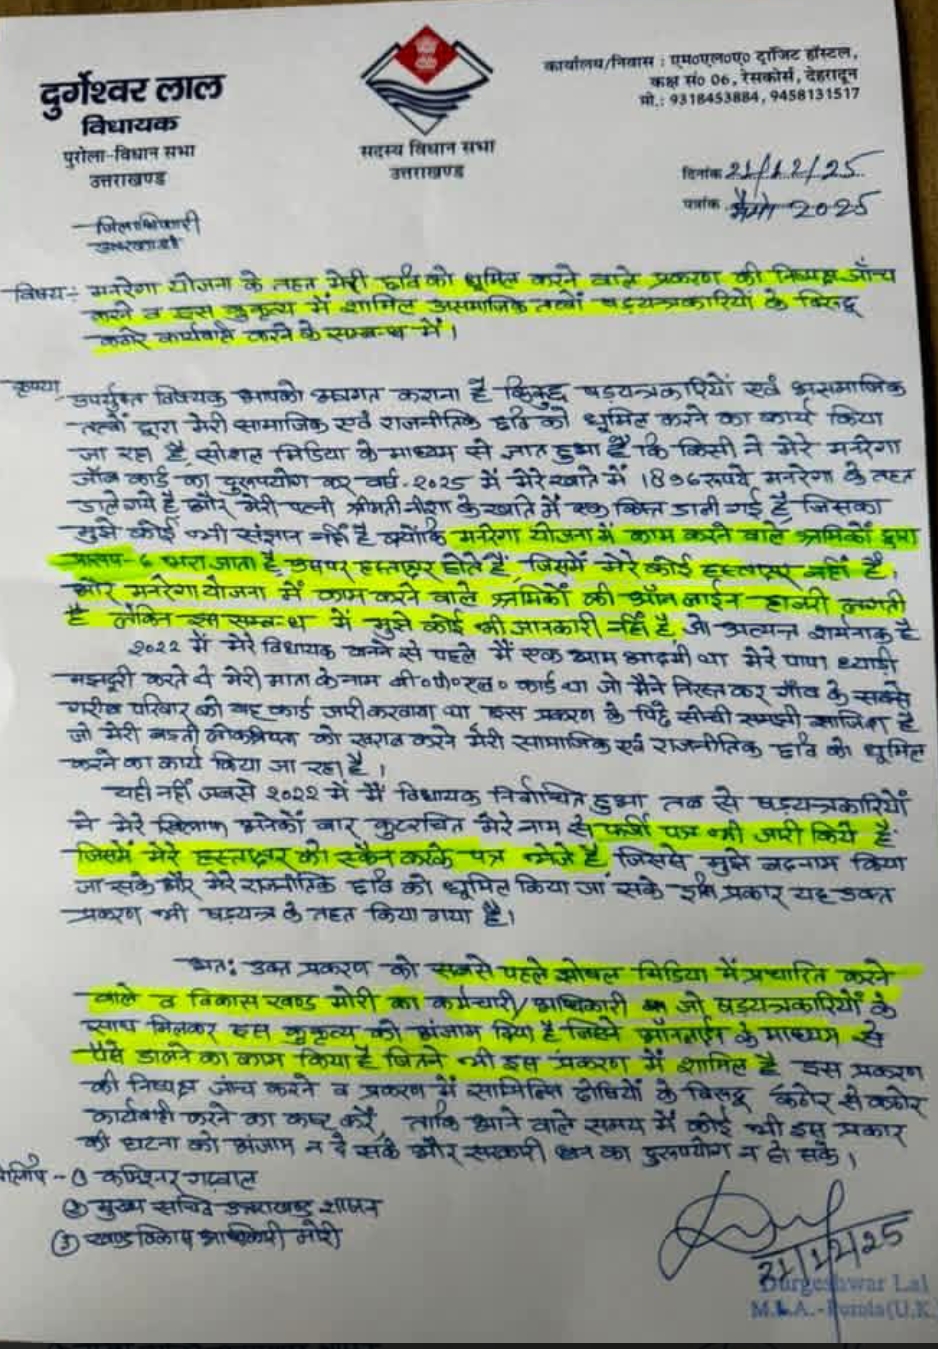 दुर्गेश्वर लाल
विधायक
पुरोला-विधान सभा
उत्तराखण्ड
सदस्य विधान सभा
उत्तराखण्ड
कार्यालय/निवास : एम०एल०ए० ट्रांजिट हॉस्टल,
कक्ष सं० 06, रेसकोर्स, देहरादून
मो.: 9318453884, 9458131517
दिनांक 21/12/25
पत्रांक मैमो 2025
जिलाधिकारी
उत्तरकाशी
विषय:- मनरेगा योजना के तहत मेरी छवि को धूमिल करने वाले प्रकरण की निष्पक्ष जाँच
करने व इस कुकृत्य में शामिल असमाजिक तत्वों षड्यन्त्रकारियों के विरुद्ध
कठोर कार्यवाही करने के सम्बन्ध में।
कृपया उपर्युक्त विषयक आपको अवगत कराना है कि कुछ षड़यन्त्रकारियों एवं असमाजिक
तत्वों द्वारा मेरी सामाजिक एवं राजनीतिक छवि को धूमिल करने का कार्य किया
जा रहा है, सोशल मिडिया के माध्यम से ज्ञात हुआ है कि किसी ने मेरे मनरेगा
जॉब कार्ड का दुरुपयोग कर वर्ष-2025 में मेरे खाते में 1896 रुपये मनरेगा के तहत
डाले गये है और मेरी पत्नी श्रीमती निशा के खाते में एक किस्त डाली गई है, जिसका
मुझे कोई भी संज्ञान नहीं है क्योंकि मनरेगा योजना में काम करने वाले श्रमिकों द्वारा
प्रारूप-6 भरा जाता है, उसपर हस्ताक्षर होते हैं, जिसमें मेरे कोई हस्ताक्षर नहीं है,
और मनरेगा योजना में काम करने वाले श्रमिकों की ऑनलाईन हाजरी लगती
है लेकिन इस सम्बन्ध में मुझे कोई भी जानकारी नहीं है, जो अत्यन्त शर्मनाक है
2022 में मेरे विधायक बनने से पहले मैं एक आम आदमी था मेरे पापा ध्याड़ी
मजदूरी करते थे मेरी माता के नाम बी०पी०एल० कार्ड था जो मैने निरस्त कर गाँव के सबसे
गरीब परिवार को वह कार्ड जारी करवाया था इस प्रकरण के पिछे सोची समझी साजिश है
जो मेरी बढ़ती लोकप्रियता को खराब करने मेरी सामाजिक एवं राजनीतिक छवि को धूमिल
करने का कार्य किया जा रहा है।
यही नहीं जबसे 2022 में मैं विधायक निर्वाचित हुआ तब से षड़यन्त्रकारियों
ने मेरे खिलाफ अनेकों बार कुटरचित मेरे नाम से फर्जी पत्र भी जारी किये है
जिसमें मेरे हस्ताक्षर को स्कैन करके पत्र भेजे है, जिससे मुझे बदनाम किया
जा सके और मेरे राजनीतिक छवि को धूमिल किया जा सके इसी प्रकार यह उक्त
प्रकरण भी षड़यन्त्र के तहत किया गया है।
अतः उक्त प्रकरण को सबसे पहले सोशल मिडिया में प्रचारित करने
वाले व विकास खण्ड मोरी का कर्मचारी/अधिकारी जो षड़यन्त्रकारियों के
साथ मिलकर इस कुकृत्य को अंजाम दिया है जिसने ऑनलाईन के माध्यम से
पैसे डालने का काम किया है जितने भी इस प्रकरण में शामिल है इस प्रकरण
की निष्पक्ष जांच करने व प्रकरण में सम्मिलित दोषियों के विरुद्ध कठोर से कठोर
कार्यवाही करने का कष्ट करें, ताकि आने वाले समय में कोई भी इस प्रकार
की घटना को अंजाम न दे सके और सरकारी धन का दुरुपयोग न हो सके।
प्रतिलिपि - ① कमिश्नर गढ़वाल
② मुख्य सचिव उत्तराखण्ड शासन
③ खण्ड विकास अधिकारी मोरी
21/12/25
Durgeshwar Lal
M.L.A.-Purola (U.K.